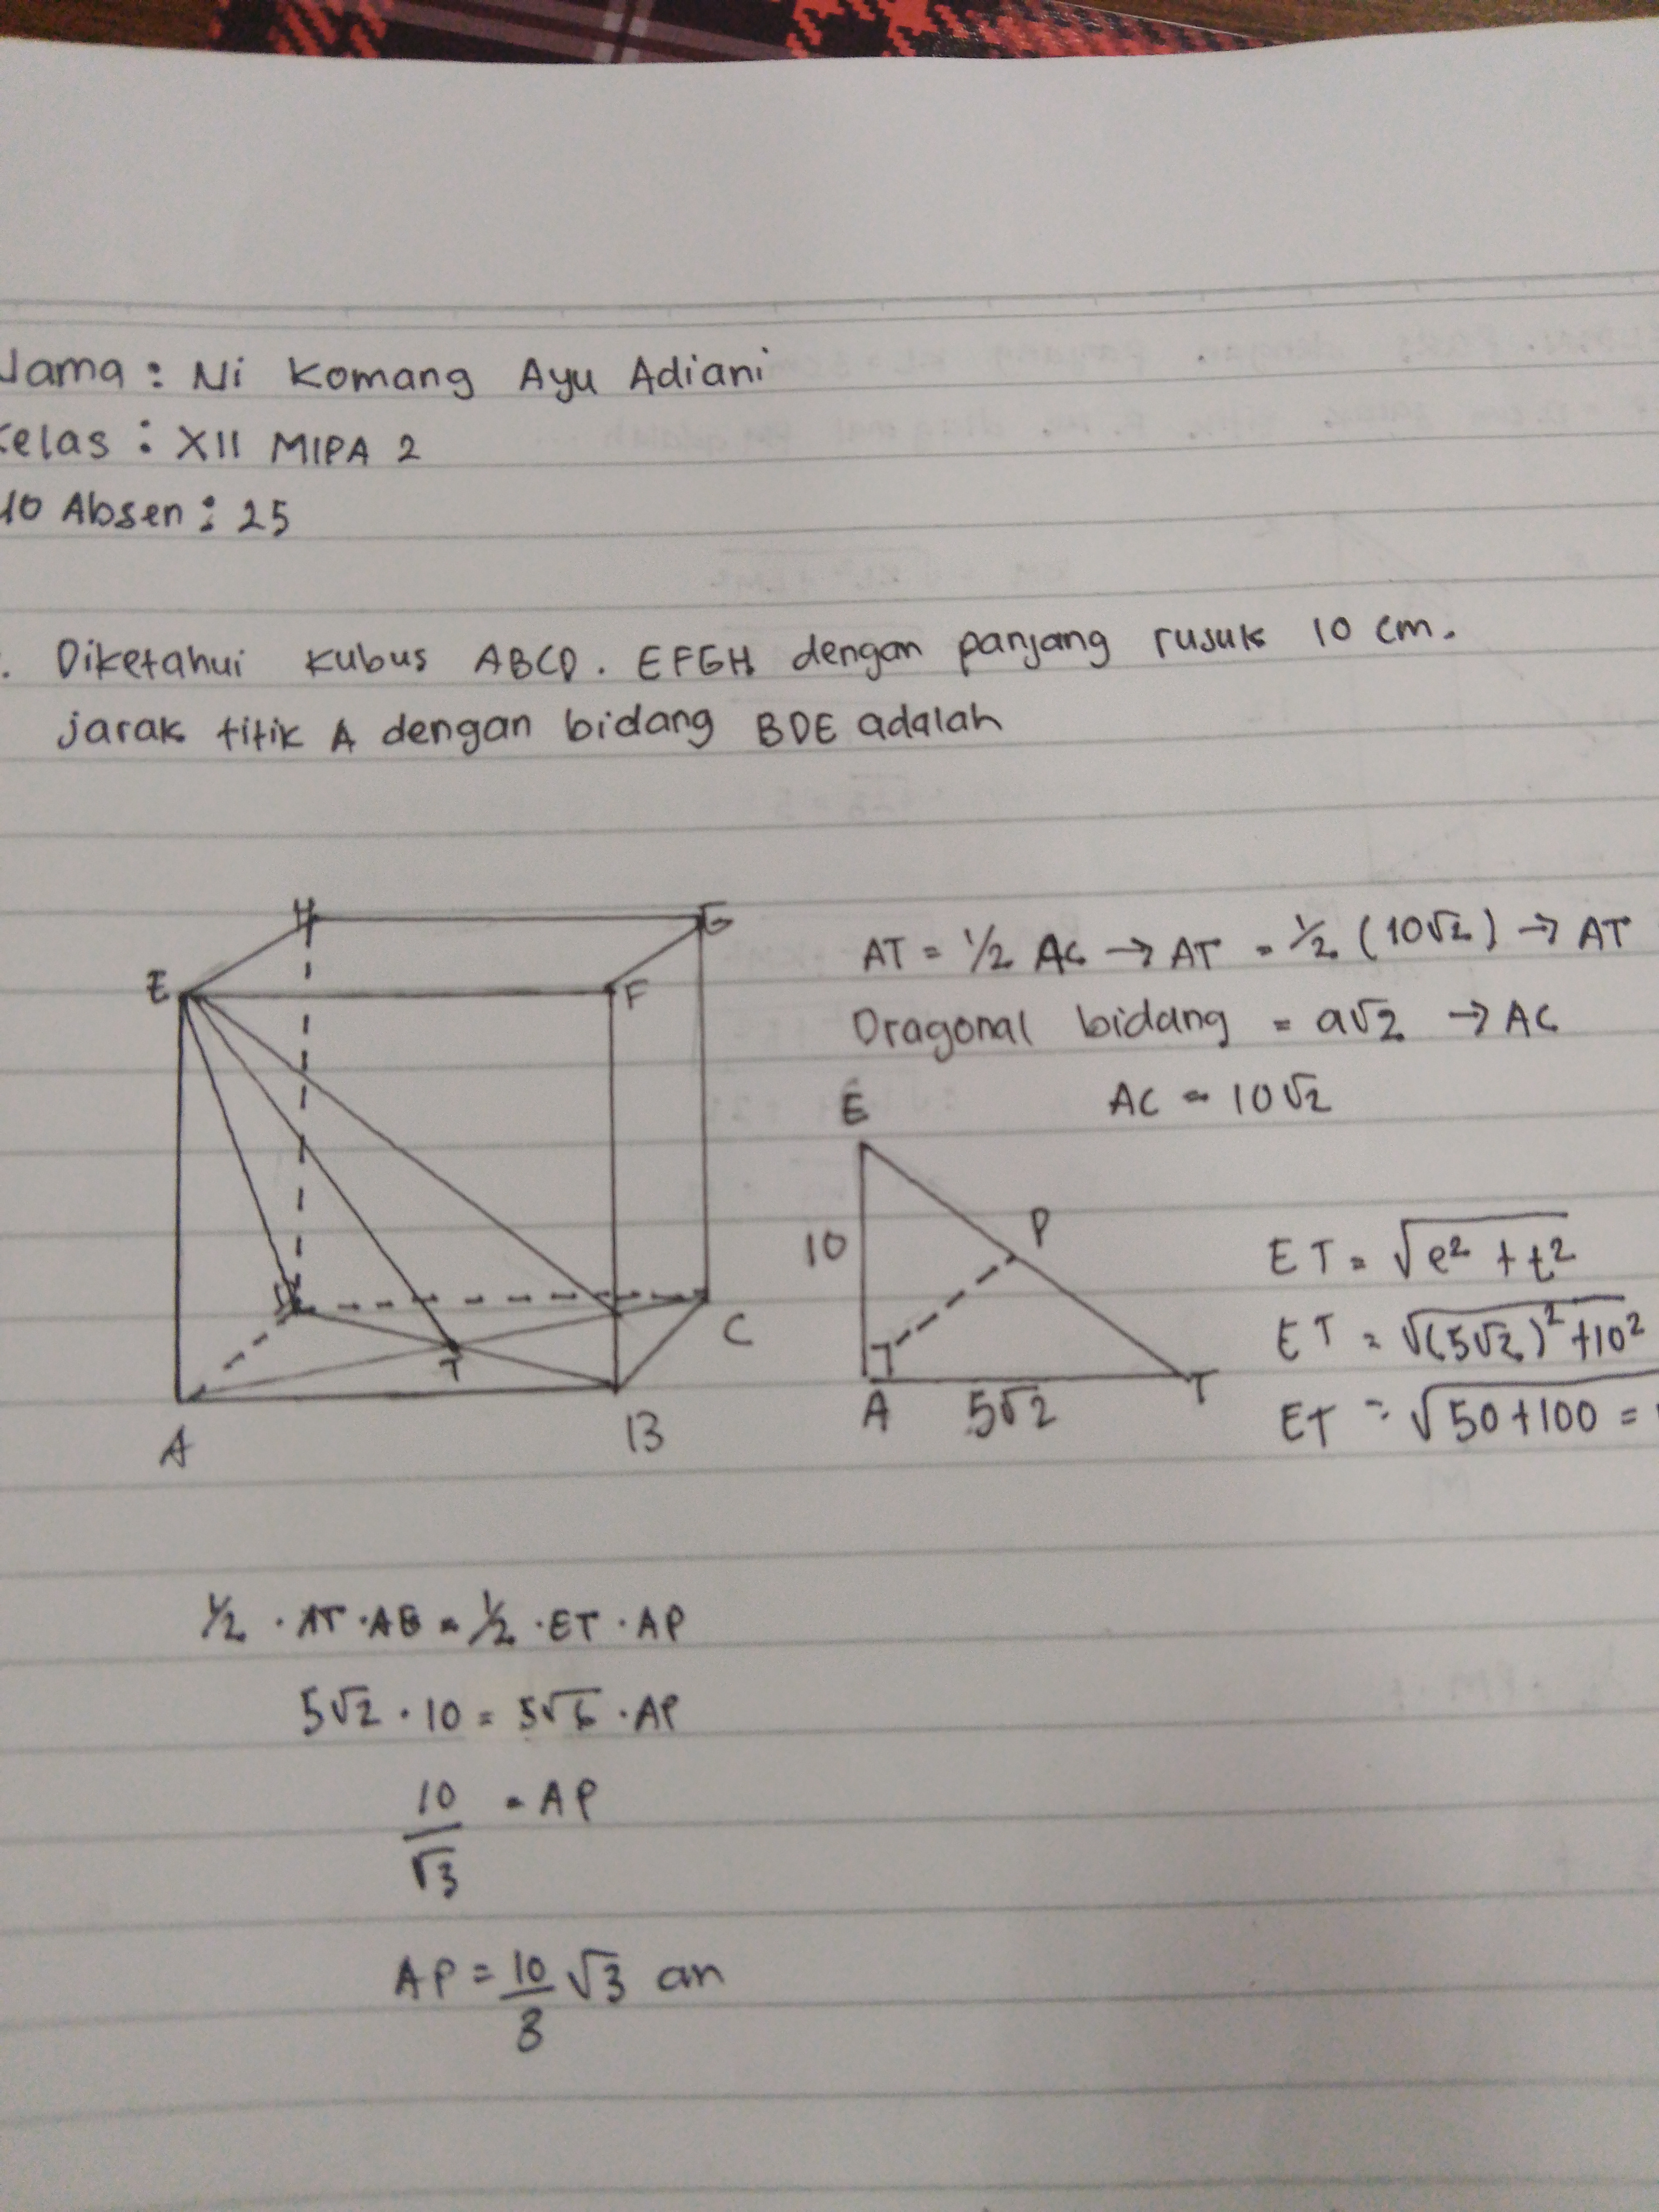 Nama : Ni Komang Ayu Adiani
Kelas : XII MIPA 2
No Absen : 25
. Diketahui kubus ABCD . EFGH dengan panjang rusuk 10 cm.
jarak titik A dengan bidang BDE adalah
H
G
E
F
D
C
T
A
B
AT = 1/2 AC → AT = 1/2 (10√2) → AT
Dragonal bidang = a√2 → AC
AC = 10√2
E
10
P
A
5√2
T
ET = √e² + t²
ET = √(5√2)² + 10²
ET = √50+100 =
1/2 · AT · AE = 1/2 · ET · AP
5√2 · 10 = 5√6 · AP
10/√3 = AP
AP = 10/3 √3 cm